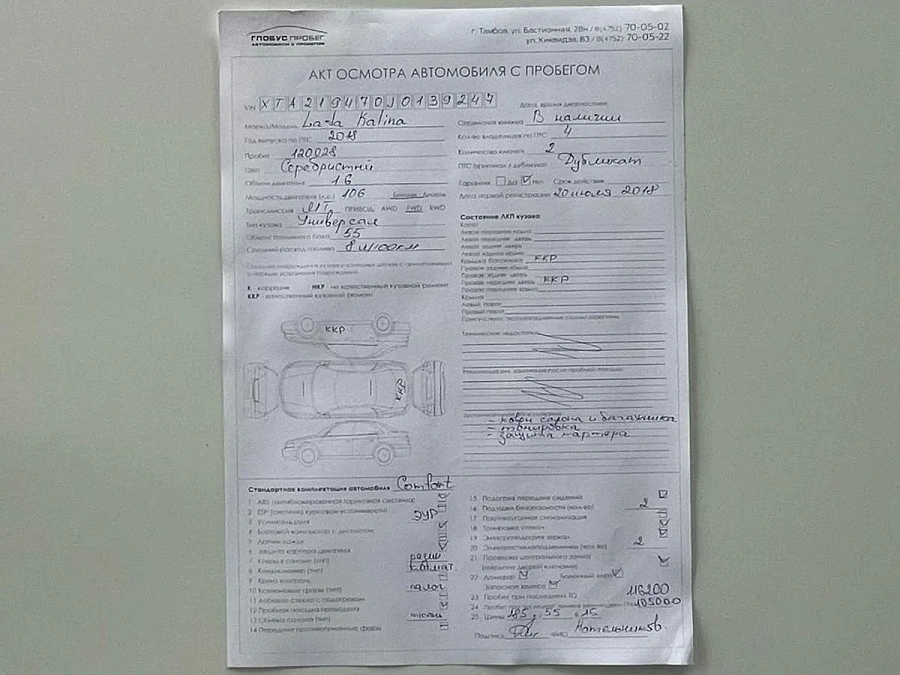 ГЛОБУС ПРОБЕГ
АВТОМОБИЛИ С ПРОБЕГОМ
г. Тамбов, ул. Бастионная, 28н / 8(4752) 70-05-02
ул. Киквидзе, 83 / 8(4752) 70-05-22
АКТ ОСМОТРА АВТОМОБИЛЯ С ПРОБЕГОМ
VIN XTA219470J0139247
Марка/Модель Lada Kalina
Год выпуска по ПТС 2018
Пробег 120028
Цвет Серебристый
Объем двигателя 1.6
Мощность двигателя (л.с.) 106 Бензин Дизель
Трансмиссия МТ ПРИВОД: AWD FWD RWD
Тип кузова Универсал
Объем топливного бака 55
Средний расход топлива 8 л/100км
К коррозия НКР не качественный кузовной ремонт
ККР качественный кузовной ремонт
ККР
ККР
Дата, время диагностики
Сервисная книжка В наличии
Кол-во владельцев по ПТС 4
Количество ключей 2
ПТС оригинал / дубликат Дубликат
Гарантия Да Нет Срок действия
Дата первой регистрации 20 июля 2018
Состояние ЛКП кузова:
Капот
Левое переднее крыло
Левая передняя дверь
Левая задняя дверь
Левое заднее крыло
Крышка багажника ККР
Правое заднее крыло
Правая задняя дверь
Правая передняя дверь ККР
Правое переднее крыло
Крыша
Левый порог
Правый порог
Технические недостатки
- ковры салона и багажника
- тонировка
- защита картера
Стандартная комплектация автомобиля Comfort
1 ABS (антиблокировочная тормозная система)
2 ESP (система курсовой устойчивости)
3 Усилитель руля ЭУР
4 Бортовой компьютер с дисплеем
5 Датчик дождя
6 Защита картера двигателя
7 Ковры в салоне (тип) резин
8 Кондиционер (тип) климат
9 Круиз контроль
10 Ксеноновые фары (тип) галог
11 Лобовое стекло с подогревом
12 Пробная поездка проведена
13 Обивка салона (тип) ткань
14 Передние противотуманные фары
15 Подогрев передних сидений
16 Подушки безопасности (кол-во) 2
17 Противоугонная сигнализация
18 Тонировка стекол
19 Электроподогрев зеркал
20 Электростеклоподъемники (кол-во) 2
21 Проверка центрального замка
(открытие дверей ключами)
22 Домкрат Баллонный ключ
Запасное колесо
23 Пробег при последнем ТО 116200
24 105000
25 Шины 185 , 55 , 15
Подпись ФИО Котельников